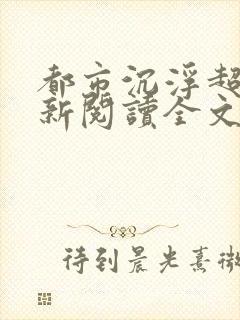 都市沉浮超
新閱讀全文
待到晨光熹微